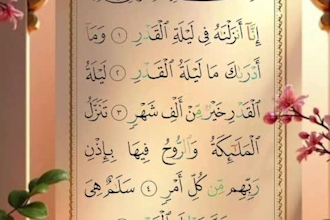 إِنَّا أَنزَلْنَٰهُ فِى لَيْلَةِ الْقَدْرِ ١ وَمَا
أَدْرَىٰكَ مَا لَيْلَةُ الْقَدْرِ ٢ لَيْلَةُ
الْقَدْرِ خَيْرٌ مِّنْ أَلْفِ شَهْرٍ ٣ تَنَزَّلُ
الْمَلَٰٓئِكَةُ وَالرُّوحُ فِيهَا بِإِذْنِ
رَبِّهِم مِّن كُلِّ أَمْرٍ ٤ سَلَٰمٌ هِىَ